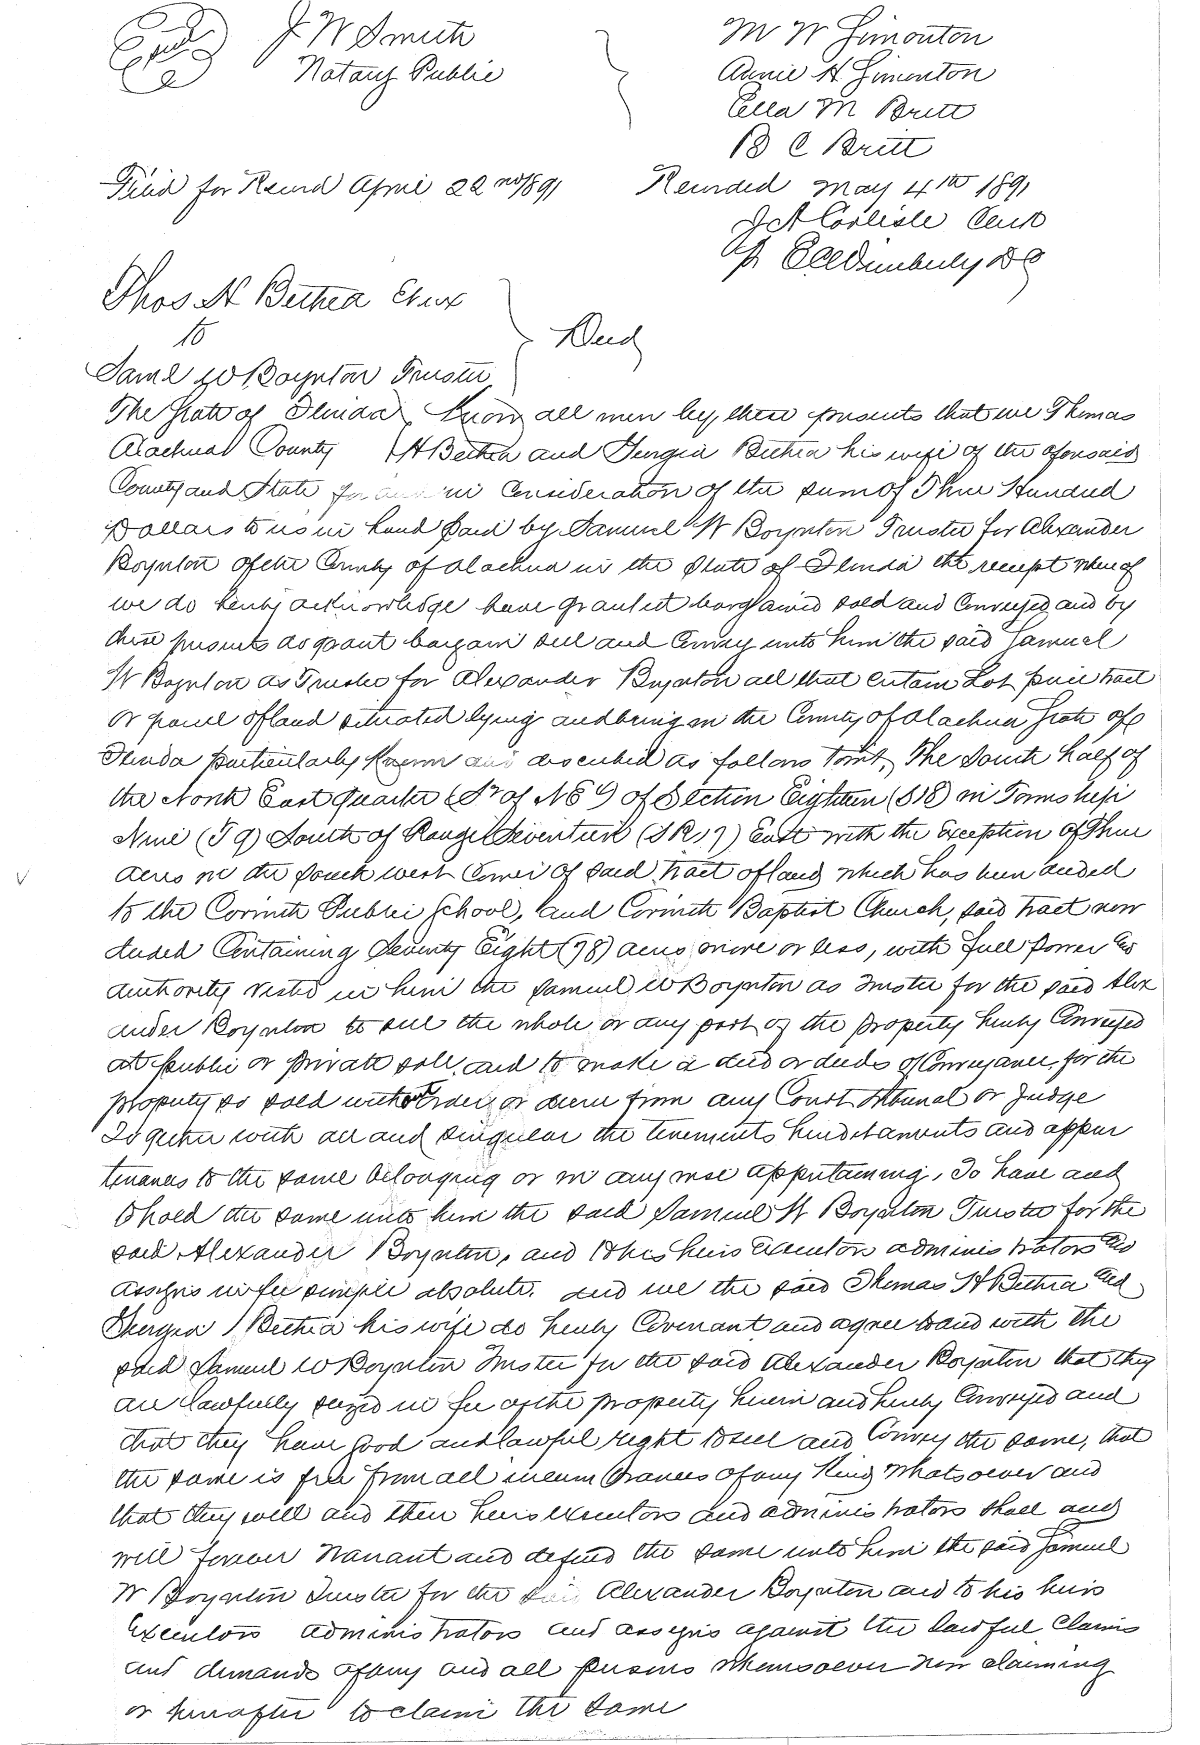 Seal
J W Smith
Notary Public
M W Simonton
Annie H Simonton
Ella M Britt
B C Britt
Filed for Record April 22nd 1891
Recorded May 4th 1891
J A Carlisle Clerk
Pr Wimberly DC
Thos H Bethea Et ux
to
Deed
Saml W Boynton Trustee
The State of Florida Know all men by these presents that we Thomas
Alachua County H Bethea and Georgia Bethea his wife of the aforesaid
County and State for and in Consideration of the sum of Three Hundred
Dollars to us in hand paid by Samuel W Boynton Trustee for Alexander
Boynton of the County of Alachua in the State of Florida the receipt where of
we do hereby acknowledge have granted bargained sold and Conveyed and by
these presents do grant bargain sell and Convey unto him the said Samuel
W Boynton as Trustee for Alexander Boynton all that certain Lot piece tract
or parcel of land situated lying and being in the County of Alachua State of
Florida particularly Known and described as follows towit, The South half of
the North East quarter (S½ of NE¼) of Section Eighteen (S18) in Township
Nine (T9) South of Range Seventeen (SR17) East with the Exception of Three
acres in the South west Corner of said tract of land which has been deeded
to the Corinth Public School, and Corinth Baptist Church, said tract now
deeded Containing Seventy Eight (78) acres more or less, with full power and
authority vested in him the Samuel W Boynton as Trustee for the said Alex
ander Boynton to sell the whole or any part of the property hereby Conveyed
at public or private sale, and to make a deed or deeds of Conveyance for the
property so sold without order or decree from any Court tribunal or Judge
Together with all and singular the tenements hereditaments and appur
tenances to the same belonging or in any wise appertaining, To have and
to hold the same unto him the said Samuel W Boynton Trustee for the
said Alexander Boynton, and to his heirs executors administrators and
assigns in fee simple absolute. and we the said Thomas H Bethea and
Georgia Bethea his wife do hereby Covenant and agree to and with the
said Samuel W Boynton Trustee for the said Alexander Boynton that they
are lawfully seized in fee of the property herein and hereby Conveyed and
that they have good and lawful right to sell and Convey the same, that
the same is free from all incumbrances of any Kind whatsoever and
that they will and their heirs executors and administrators shall and
will forever Warrant and defend the same unto him the said Samuel
W Boynton Trustee for the said Alexander Boynton and to his heirs
Executors administrators and assigns against the lawful claims
and demands of any and all persons whomsoever now claiming
or hereafter to claim the same